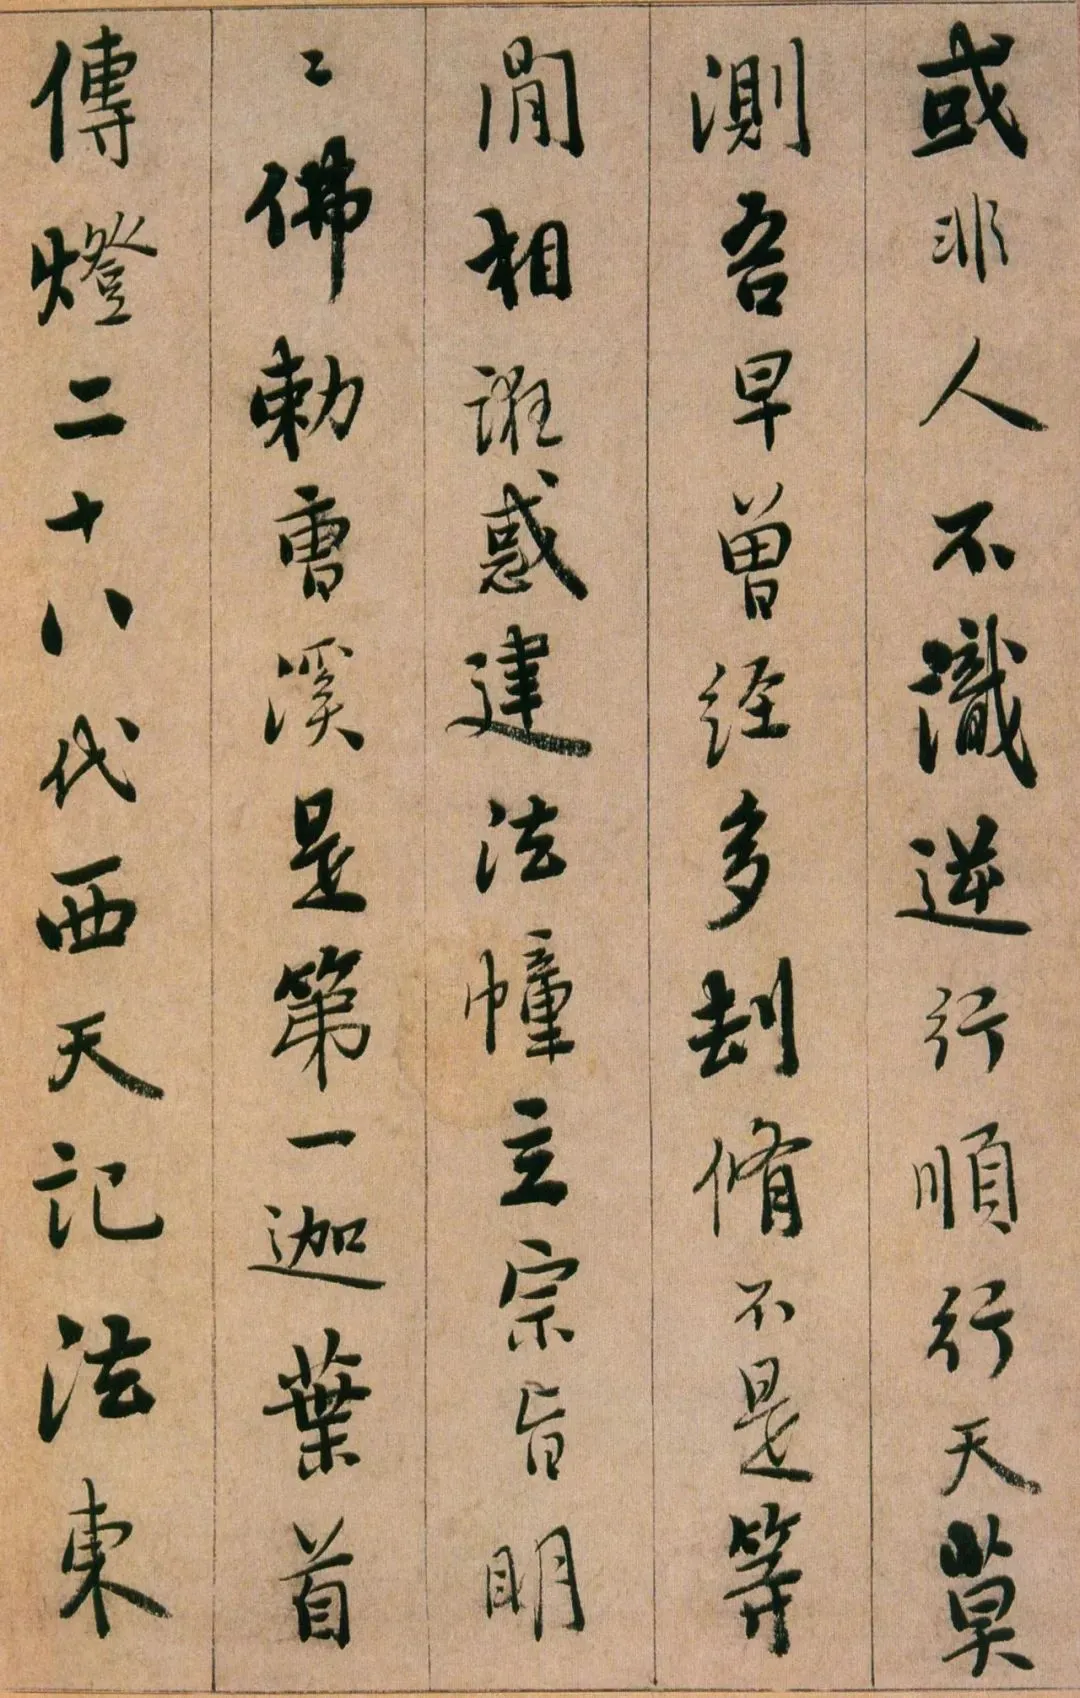 或非人不識逆行順行天莫
測吾早曾経多劫脩不是等
閑相誑惑建法幢立宗旨明
〻佛勅曹溪是第一迦葉首
傳燈二十八代西天記法東